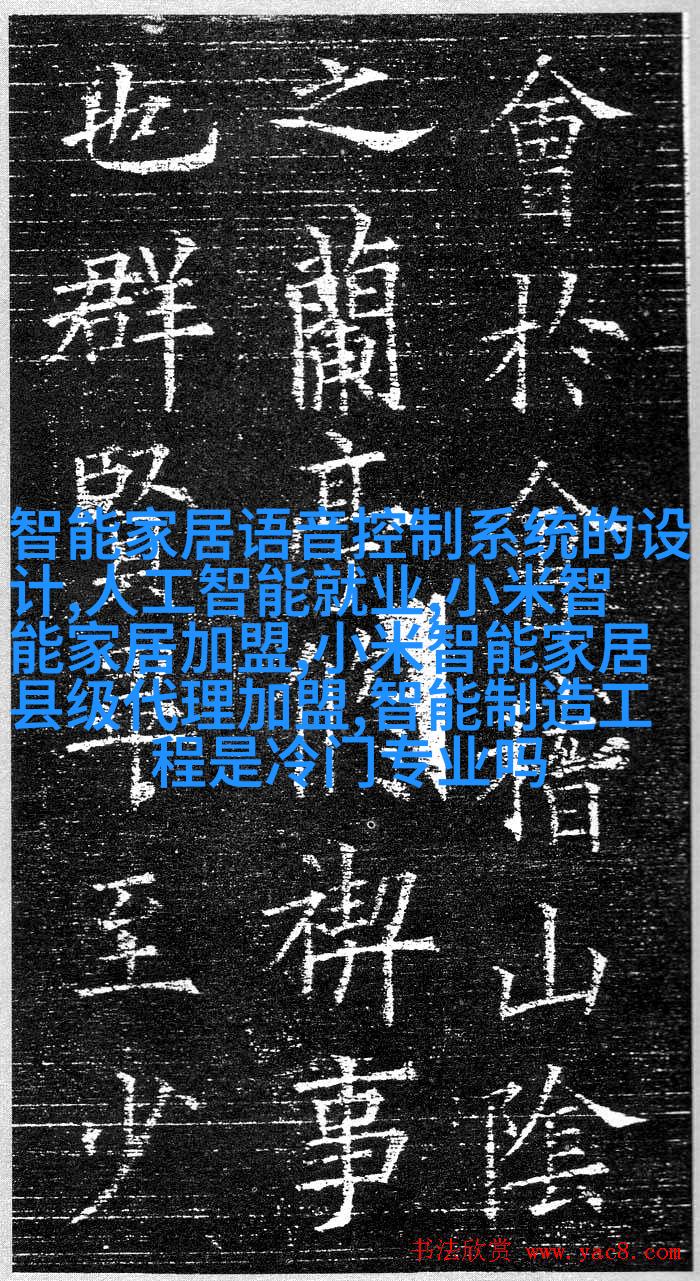 會於會稽山陰
之蘭亭脩禊事
也群賢畢至少
智能家居语音控制系统的设
计,人工智能就业,小米智
能家居加盟,小米智能家居
县级代理加盟,智能制造工
程是冷门专业吗
书法欣赏 www.yac8.com